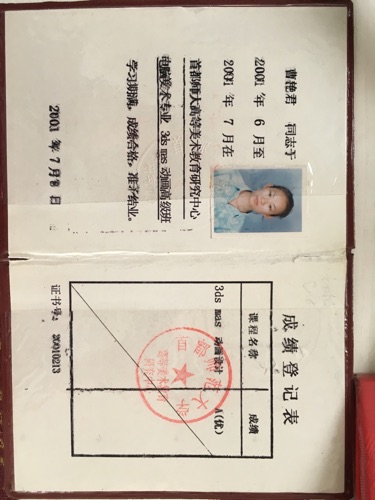 曹艳君 同志于
2001 年 6 月至
2001 年 7 月在
首都师大高等美术教育研究中心
电脑美术专业 3ds max 动画高级班
学习期满，成绩合格，准予结业。
2001 年 7 月 8 日
成绩登记表
课程名称 成绩
3ds max 动画设计 A(优)
证书号： 20010213